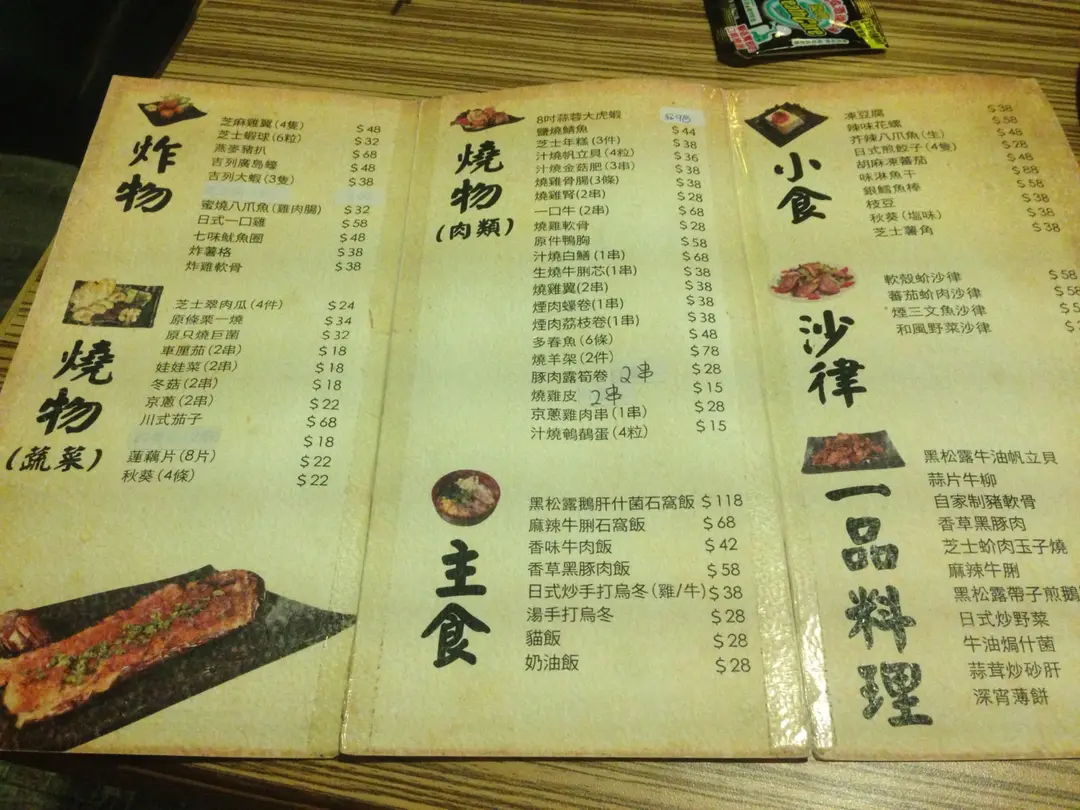 炸物
芝麻雞翼(4隻) $48
芝士蝦球(6粒) $32
燕麥豬扒 $68
吉列廣島蠔 $48
吉列大蝦(3隻) $38
蜜燒八爪魚(雞肉腸) $32
日式一口雞 $58
七味魷魚圈 $48
炸薯格 $38
炸雞軟骨 $38
燒物
(蔬菜)
芝士翠肉瓜(4件) $24
原條粟一燒 $34
原只燒巨菌 $32
車厘茄(2串) $18
娃娃菜(2串) $18
冬菇(2串) $18
京蔥(2串) $22
川式茄子 $68
$18
蓮藕片(8片) $22
秋葵(4條) $22
燒物
(肉類)
8吋蒜蓉大虎蝦
鹽燒鯖魚 $44
芝士年糕(3件) $38
汁燒帆立貝(4粒) $36
汁燒金菇肥(3串) $38
燒雞骨腸(3條) $38
燒雞腎(2串) $28
一口牛(2串) $68
燒雞軟骨 $28
原件鴨胸 $58
汁燒白鱔(1串) $68
生燒牛脷芯(1串) $38
燒雞翼(2串) $38
煙肉蠔卷(1串) $38
煙肉荔枝卷(1串) $38
多春魚(6條) $48
燒羊架(2件) $78
豚肉露筍卷 2串 $28
燒雞皮 2串 $15
京蔥雞肉串(1串) $28
汁燒鵪鶉蛋(4粒) $15
主食
黑松露鵝肝什菌石窩飯 $118
麻辣牛脷石窩飯 $68
香味牛肉飯 $42
香草黑豚肉飯 $58
日式炒手打烏冬(雞/牛) $38
湯手打烏冬 $28
貓飯 $28
奶油飯 $28
小食
凍豆腐 $38
辣味花螺 $58
芥辣八爪魚(生) $48
日式煎餃子(4隻) $28
胡麻凍蕃茄 $48
味淋魚干 $88
銀鱈魚棒 $58
枝豆 $38
秋葵(塩味) $38
芝士薯角 $38
沙律
軟殼蚧沙律 $58
蕃茄蚧肉沙律
煙三文魚沙律
和風野菜沙律
一品料理
黑松露牛油帆立貝
蒜片牛柳
自家制豬軟骨
香草黑豚肉
芝士蚧肉玉子燒
麻辣牛脷
黑松露帶子煎鵝
日式炒野菜
牛油焗什菌
蒜茸炒砂肝
深宵薄餅